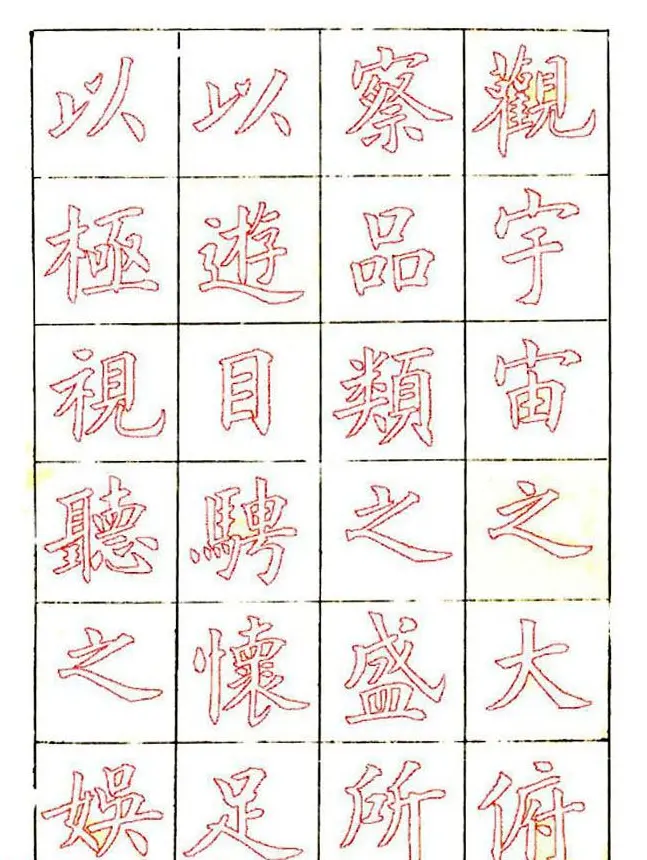 觀宇宙之大俯
察品類之盛所
以遊目騁懷足
以極視聽之娛